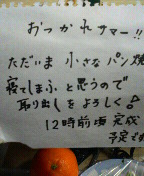 おつかれサマー!!
ただいま 小さなパン焼
寝てしまふと思うので
取り出しをよろしく
12時前頃 完成
予定です